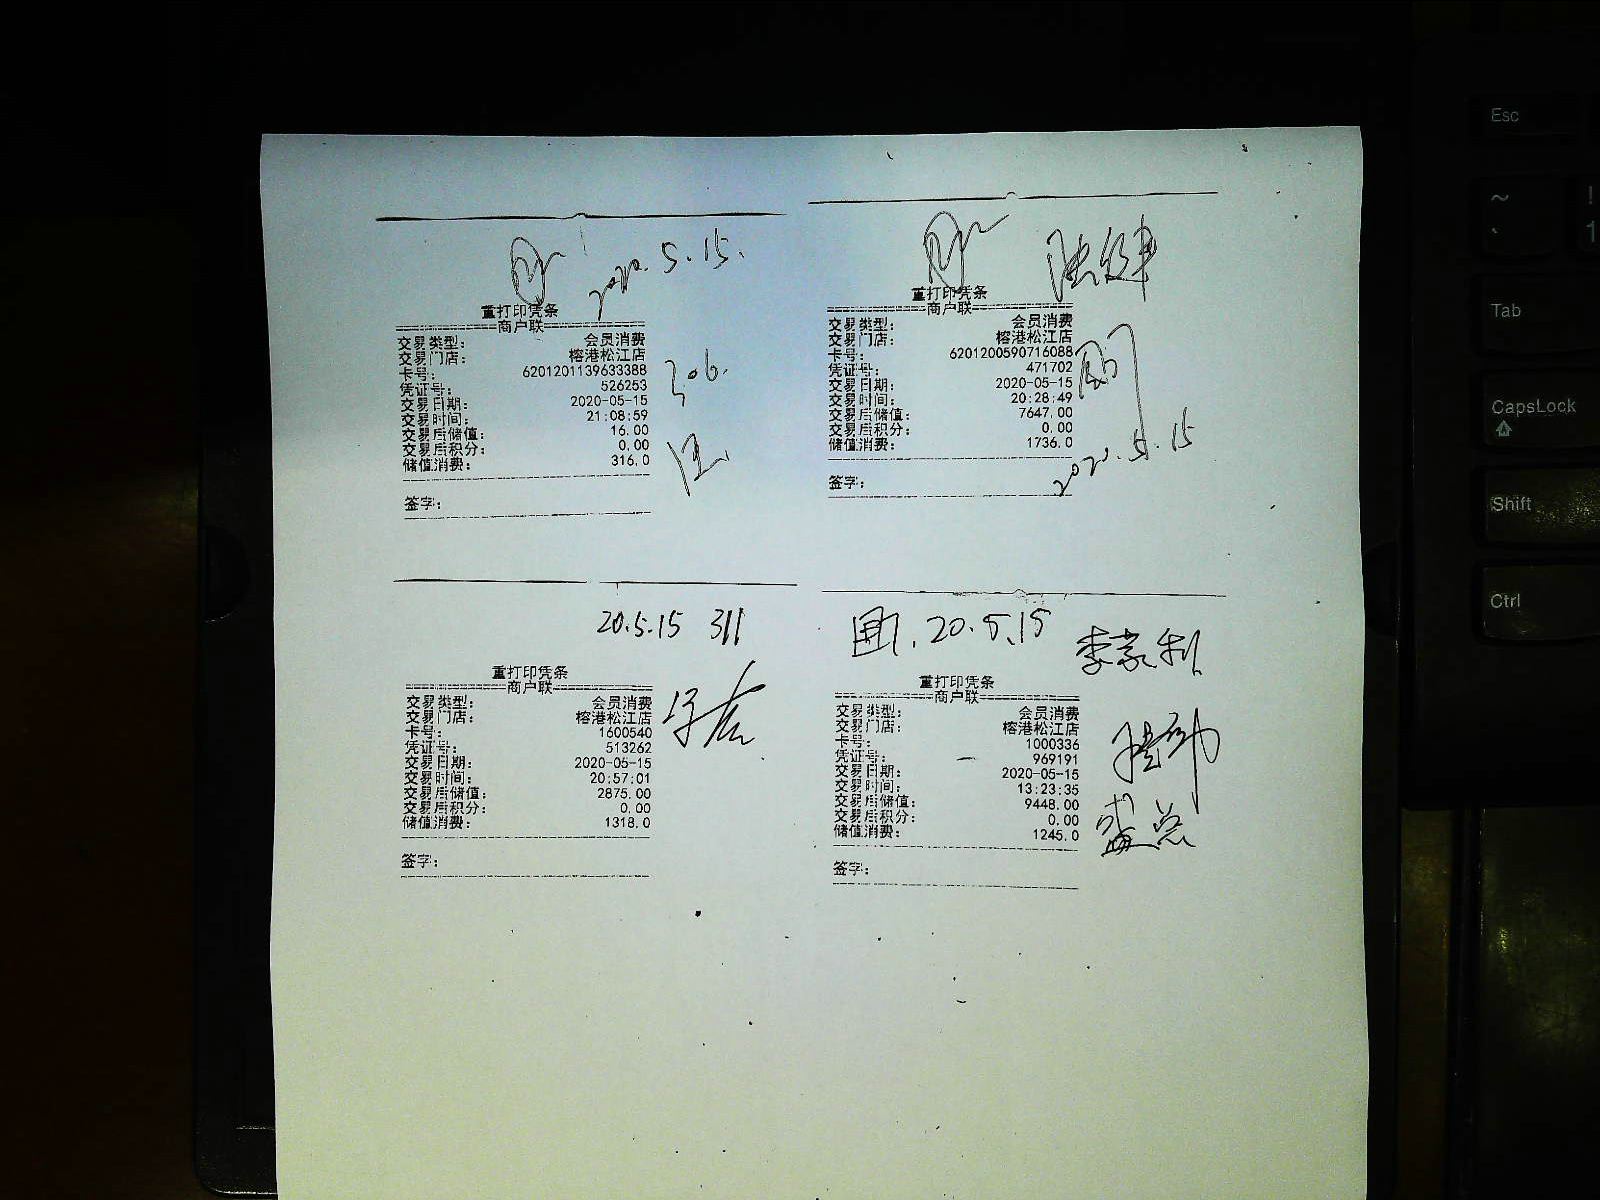 2020.5.15.
重打印凭条
商户联
交易类型: 会员消费
交易门店: 榕港松江店
卡号: 6201201139633388
凭证号: 526253
交易日期: 2020-05-15
交易时间: 21:08:59
交易后储值: 16.00
交易后积分: 0.00
储值消费: 316.0
签字:
306.
重打印凭条
商户联
交易类型: 会员消费
交易门店: 榕港松江店
卡号: 6201200590716088
凭证号: 471702
交易日期: 2020-05-15
交易时间: 20:28:49
交易后储值: 7647.00
交易后积分: 0.00
储值消费: 1736.0
签字:
2020.5.15
20.5.15 311
重打印凭条
商户联
交易类型: 会员消费
交易门店: 榕港松江店
卡号: 1600540
凭证号: 513262
交易日期: 2020-05-15
交易时间: 20:57:01
交易后储值: 2875.00
交易后积分: 0.00
储值消费: 1318.0
签字:
20.5.15
重打印凭条
商户联
交易类型: 会员消费
交易门店: 榕港松江店
卡号: 1000336
凭证号: 969191
交易日期: 2020-05-15
交易时间: 13:23:35
交易后储值: 9448.00
交易后积分: 0.00
储值消费: 1245.0
签字:
盛总
Esc
~ !
` 1
Tab
CapsLock
Shift
Ctrl